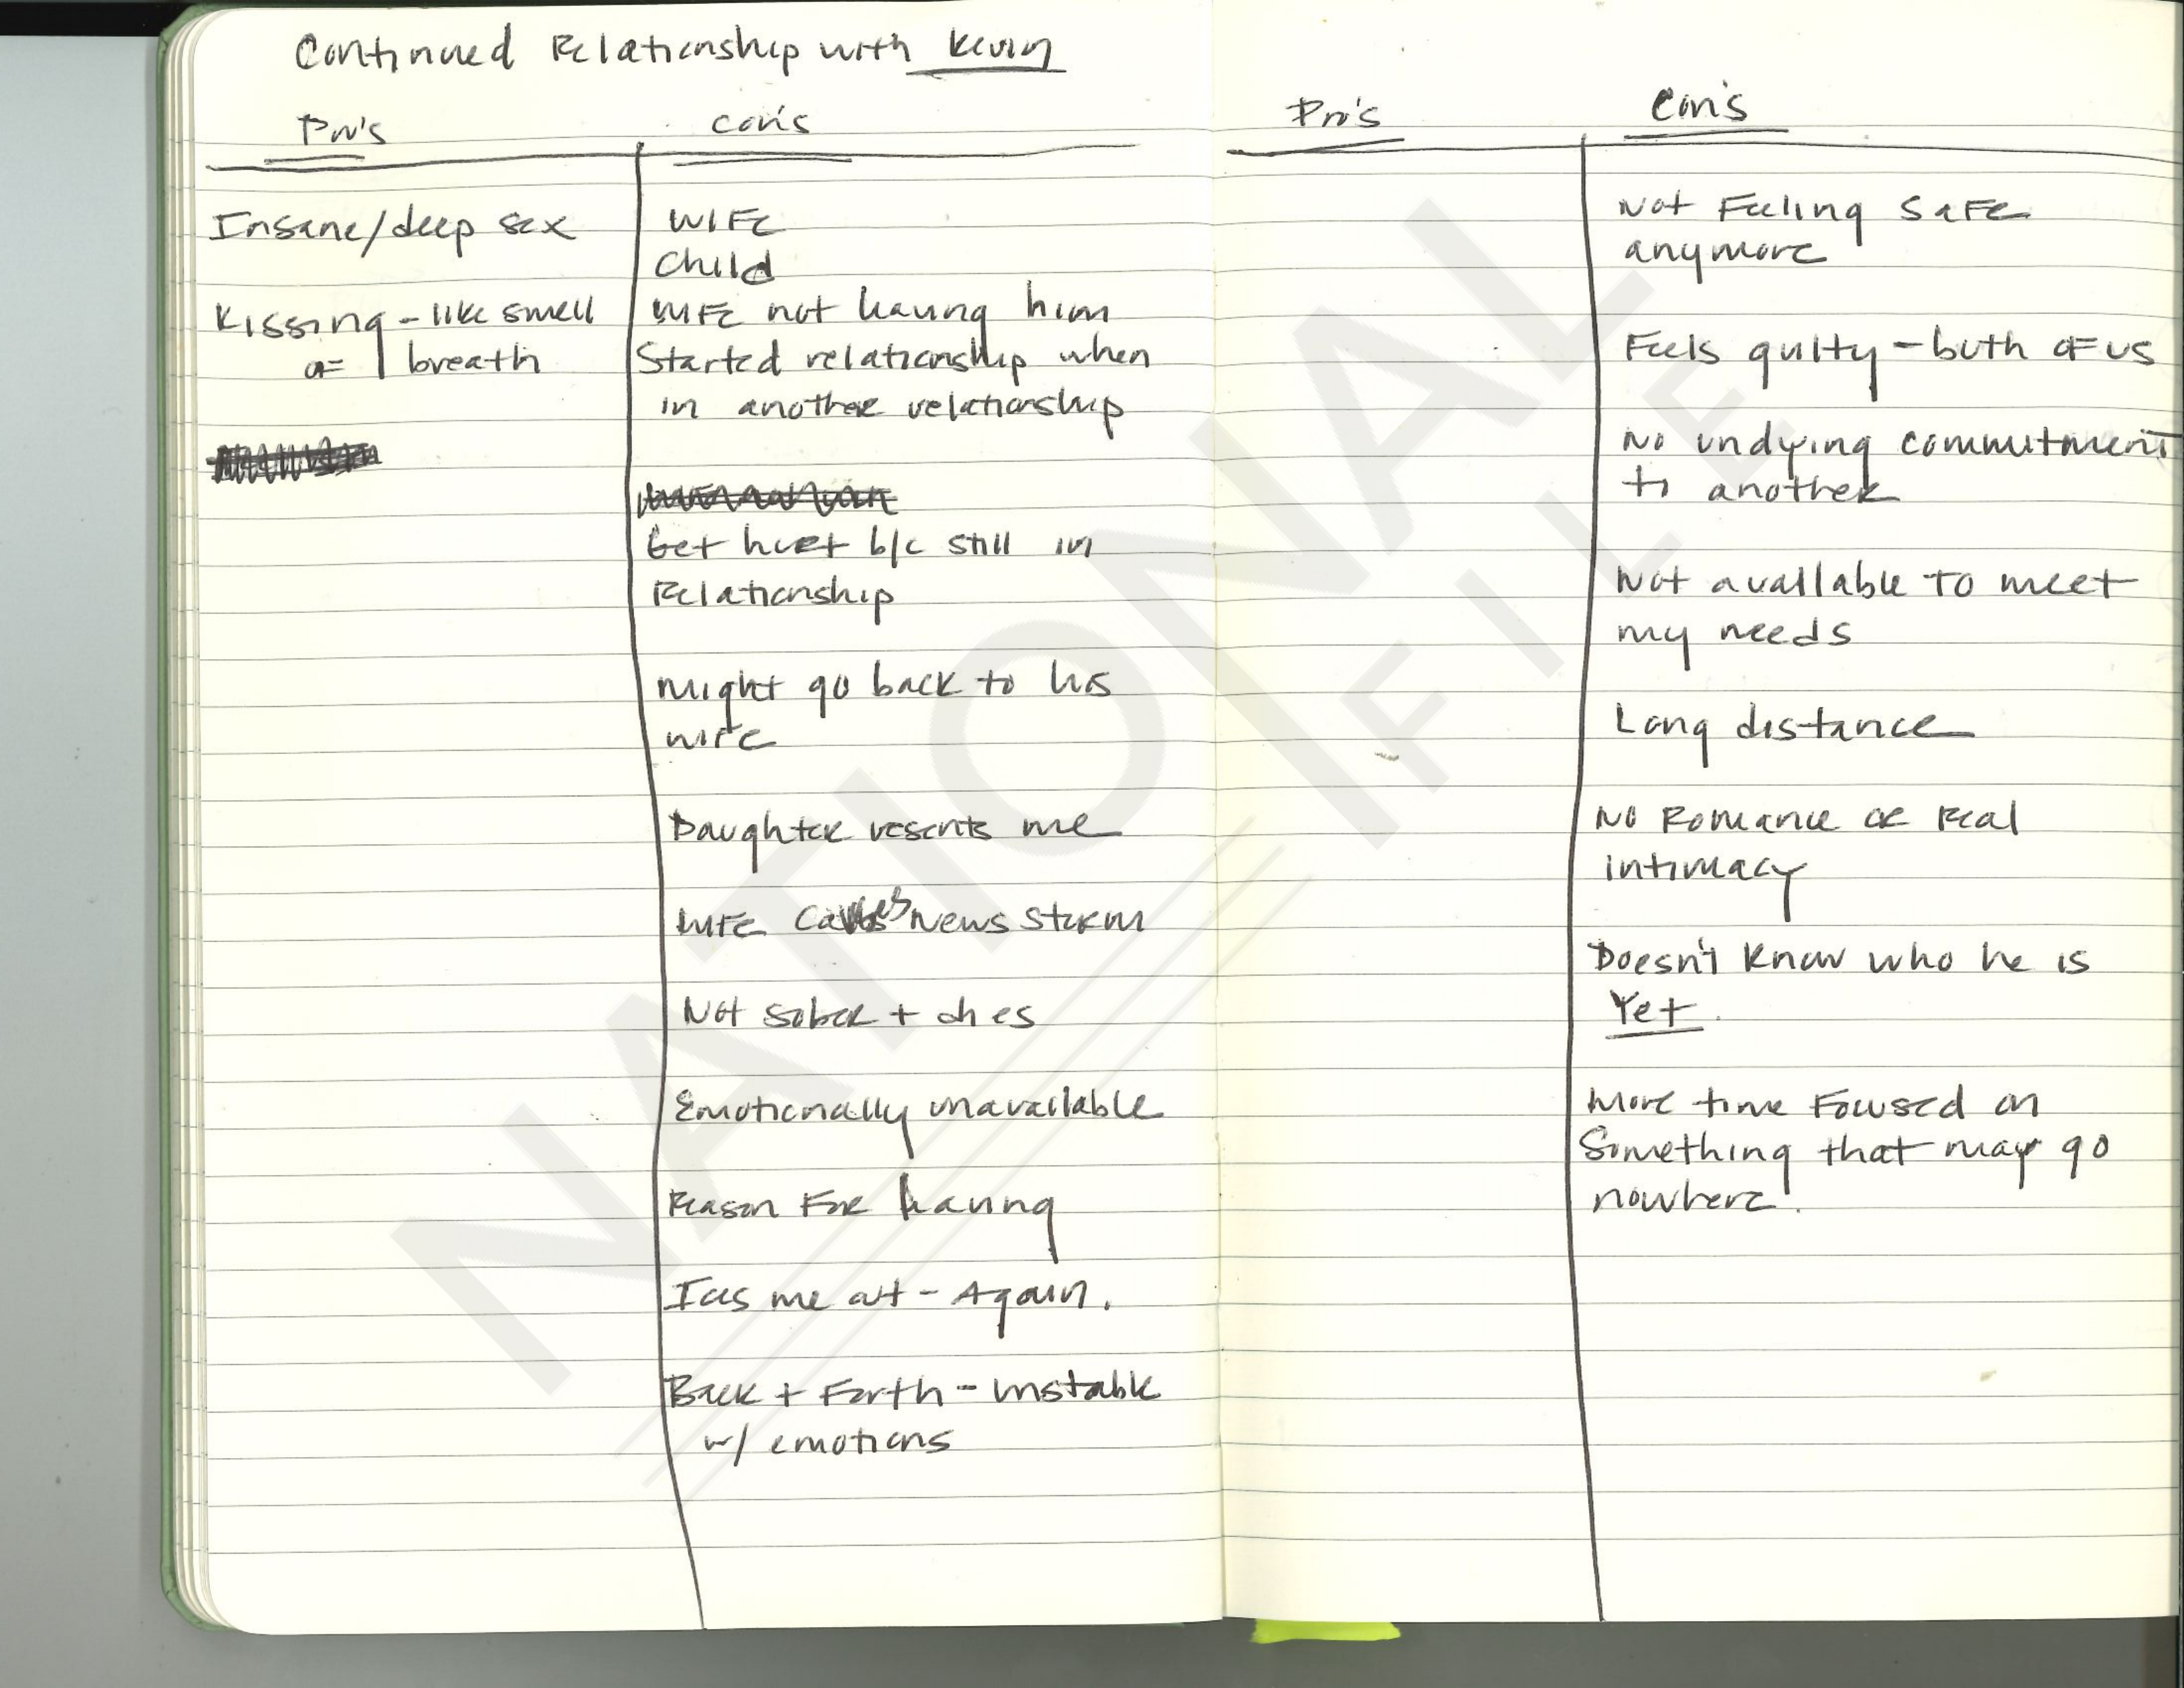 Continued Relationship with Kevin
Pro's
Insane/deep sex
Kissing - like smell
of breath
Con's
WIFE
Child
WIFE not him
Started relationship when
in another relationship
Get hurt b/c still in
Relationship
Might go back to his
wife
Daughter resents me
WIFE Causes News Storm
Not sober + dies
Emotionally unavailable
Reason For
Ices me out - Again.
Back + Forth - unstable
w/ emotions
Pro's
Con's
Not Feeling SAFE
anymore
Feels guilty - both of us
No undying commitment
to another
Not available to meet
my needs
Long distance
No Romance or Real
intimacy
Doesn't know who he is
Yet.
More time Focused on
Something that may go
nowhere.
NATIONAL
FILE